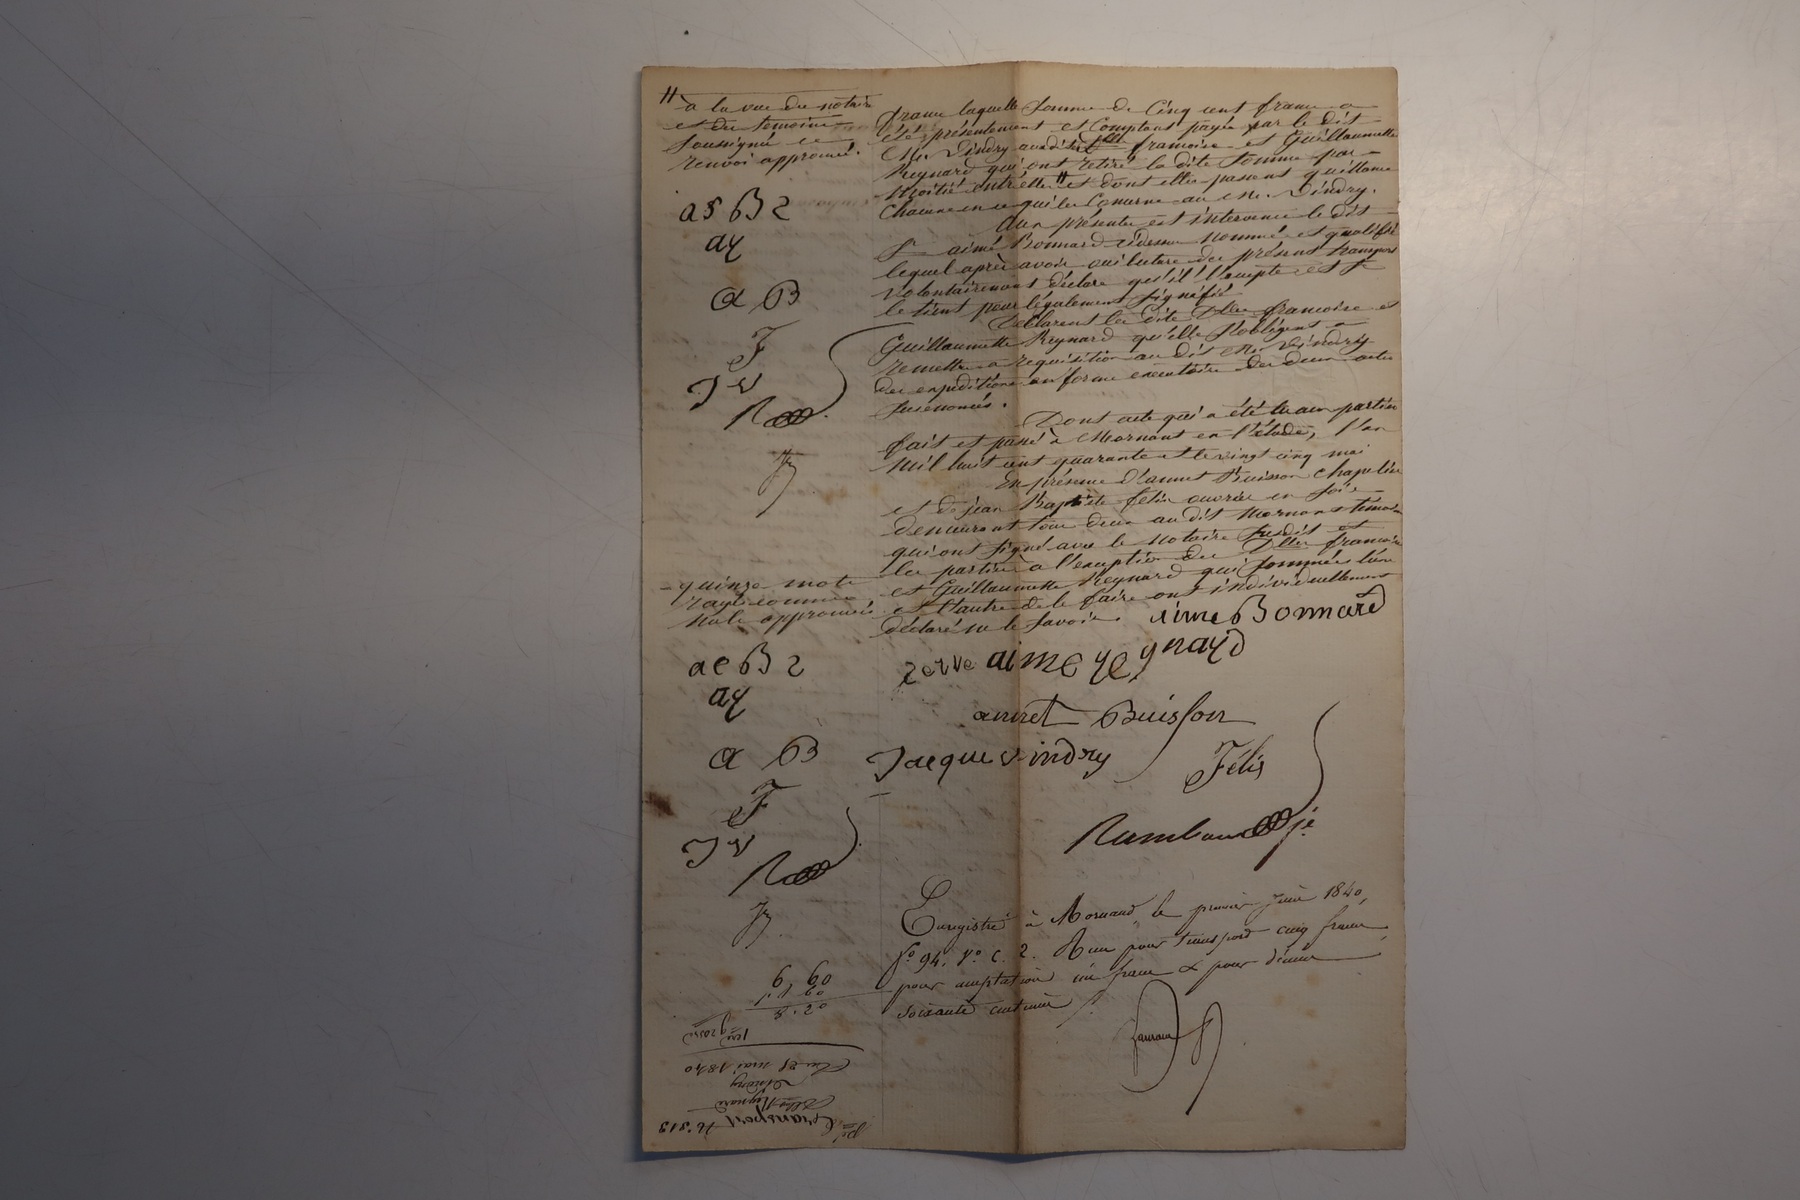 à la vue du notaire
et des témoins
soussignés ce
renvoi approuvé.
francs laquelle somme de Cinq cent francs a
été présentement et Comptant payée par le dit
Mr. Vindry auxdites Dlles francoise et Guillaumette
Reynard qui ont retiré la dite somme par
moitié entr'elles et dont elles passent quittance
chacune en ce qui les Concerne au Mr. Vindry.
Aux présentes est intervenu le dit
Sr aimé Bonnard cidessus nommé et qualifié
lequel après avoir oui lecture des présent transport
volontairement déclare qu'il l'accepte et se
le tient pour légalement signifié
Déclarent les dites Dlles francoise et
Guillaumette Reynard qu'elles s'obligent a
remettre a requisition au dit Mr. Vindry
des expéditions en forme exécutoire des deux actes
susénoncés.
Dont acte qui a été lu aux parties
fait et passé à Mornant en l'étude, l'an
mil huit cent quarante et le vingt cinq mai
En présence d'annet Buisson chapelier
et de jean Baptiste felix ouvrier en soie
demeurant tous deux au dit Mornant témoins
qui ont signé avec le notaire susdit et
les parties a l'exception des Dlles francoise
et Guillaumette Reynard qui sommées l'une
et l'autre de le faire ont individuellement
déclaré ne le savoir.
quinze mots
rayés comme
nuls approuvés
aime Bonnard
aime reynard
annet Buisson
Jacque vindry
Félix
a B
F
J v
Enregistré à Mornant le premier Juin 1840,
fo 94. Vo C. 2. Reçu pour transport cinq francs
pour acceptation un franc & pour décime
soixante centimes
6 60
1 10
Du 25 mai 1840
Vindry
Dlles Reynard
Transport